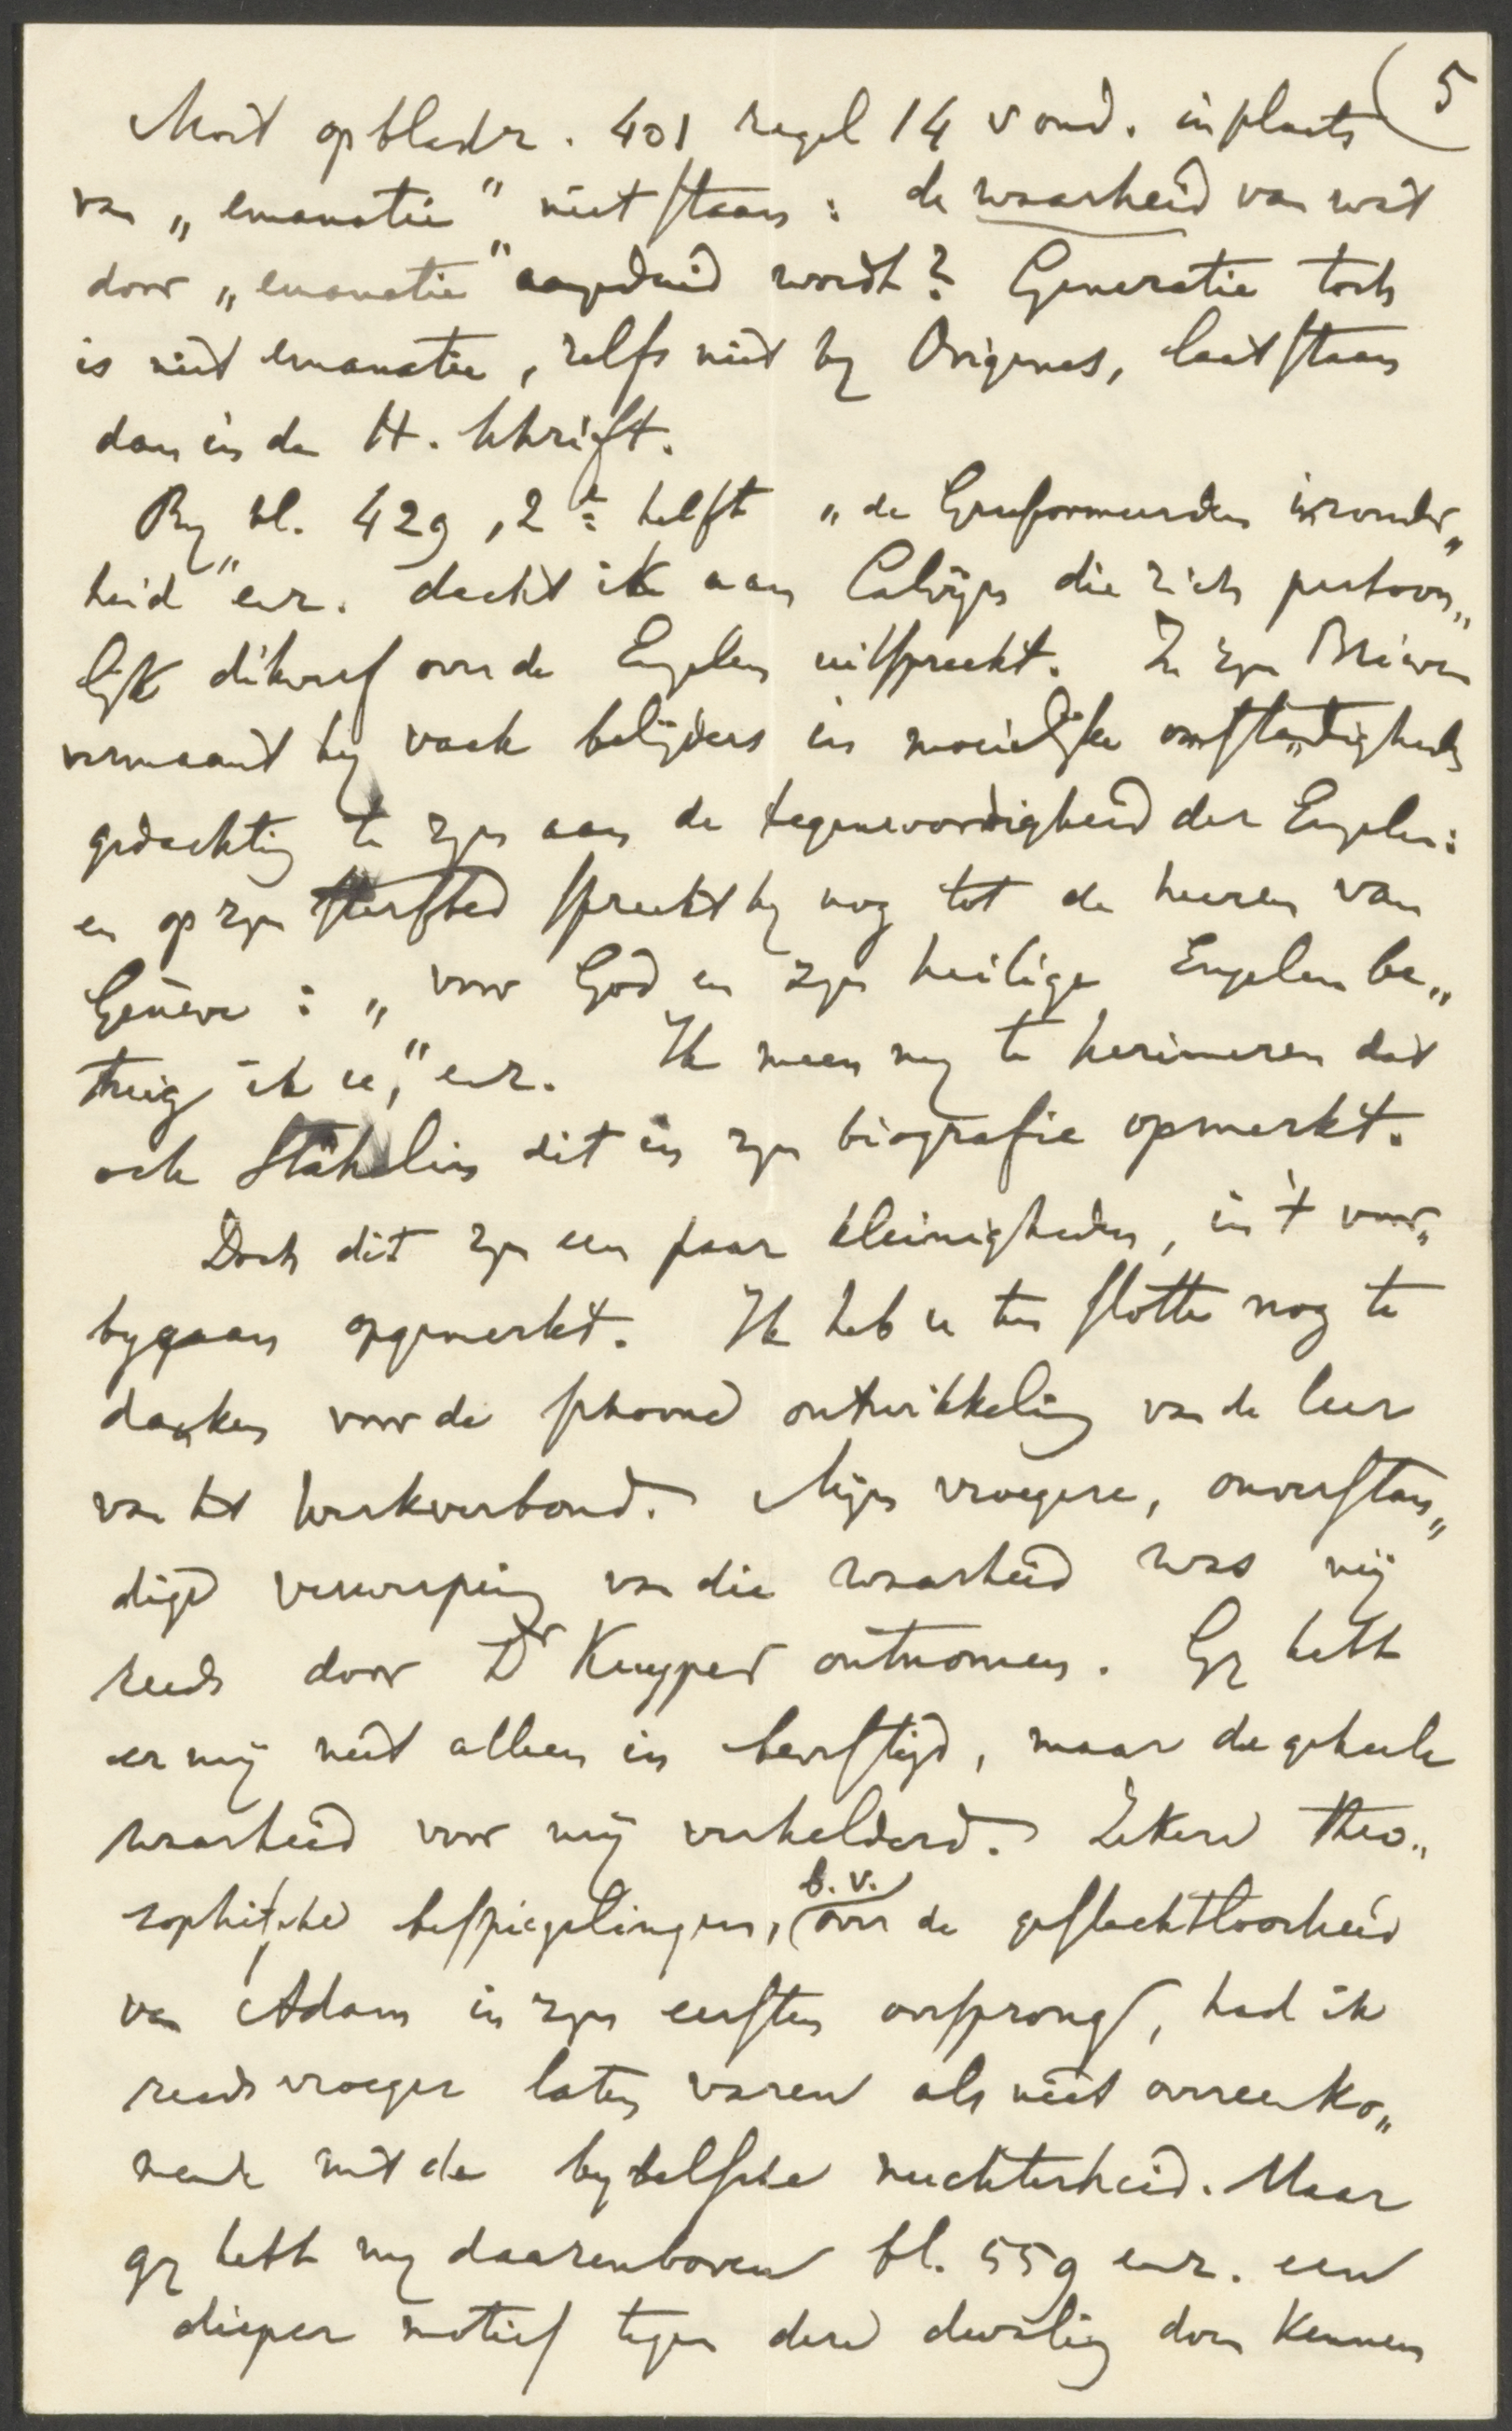 (5
Moet op bladz. 401 regel 14 v ond. in plaats
van „emanatie" niet staan: de waarheid van wat
door „emanatie" aangeduid wordt? Generatie toch
is niet emanatie, zelfs niet by Origenes, laat staan
dan in de H. Schrift.
By bl. 429, 2e helft „de Gereformeerden inzonder„
heid" enz. dacht ik aan Calvijn die zich persoon„
lijk dikwerf over de Engelen uitspreekt. In zyn Brieven
vermaant hy vaak belijders in moeielijke omstandigheden
gedachtig te zyn aan de tegenwoordigheid der Engelen:
en op zyn sterfbed spreekt hy nog tot de heeren van
Genève: „voor God en zyn heilige Engelen be„
tuig ik u," enz. Ik meen my te herinneren dat
ook Stähelin dit in zyn biografie opmerkt.
Doch dit zyn een paar kleinigheden, in 't voor„
bygaan opgemerkt. Ik heb u ten slotte nog te
danken voor de schoone ontwikkeling van de leer
van het werkverbond. Mijn vroegere, onverstan„
dige verwerping van die waarheid was mij
reeds door Dr Kuyper ontnomen. Gy hebt
er mij niet alleen in bevestigd, maar de geheele
waarheid voor mij verhelderd. Zekere theo„
sophische bespiegelingen, b.v. over de geslachtloosheid
van Adam in zyn eersten oorsprong, had ik
reeds vroeger laten varen als niet overeenko„
mende met de bybelsche nuchterheid. Maar
gy hebt my daarenboven bl. 559 enz. een
dieper motief tegen deze dwaling doen kennen